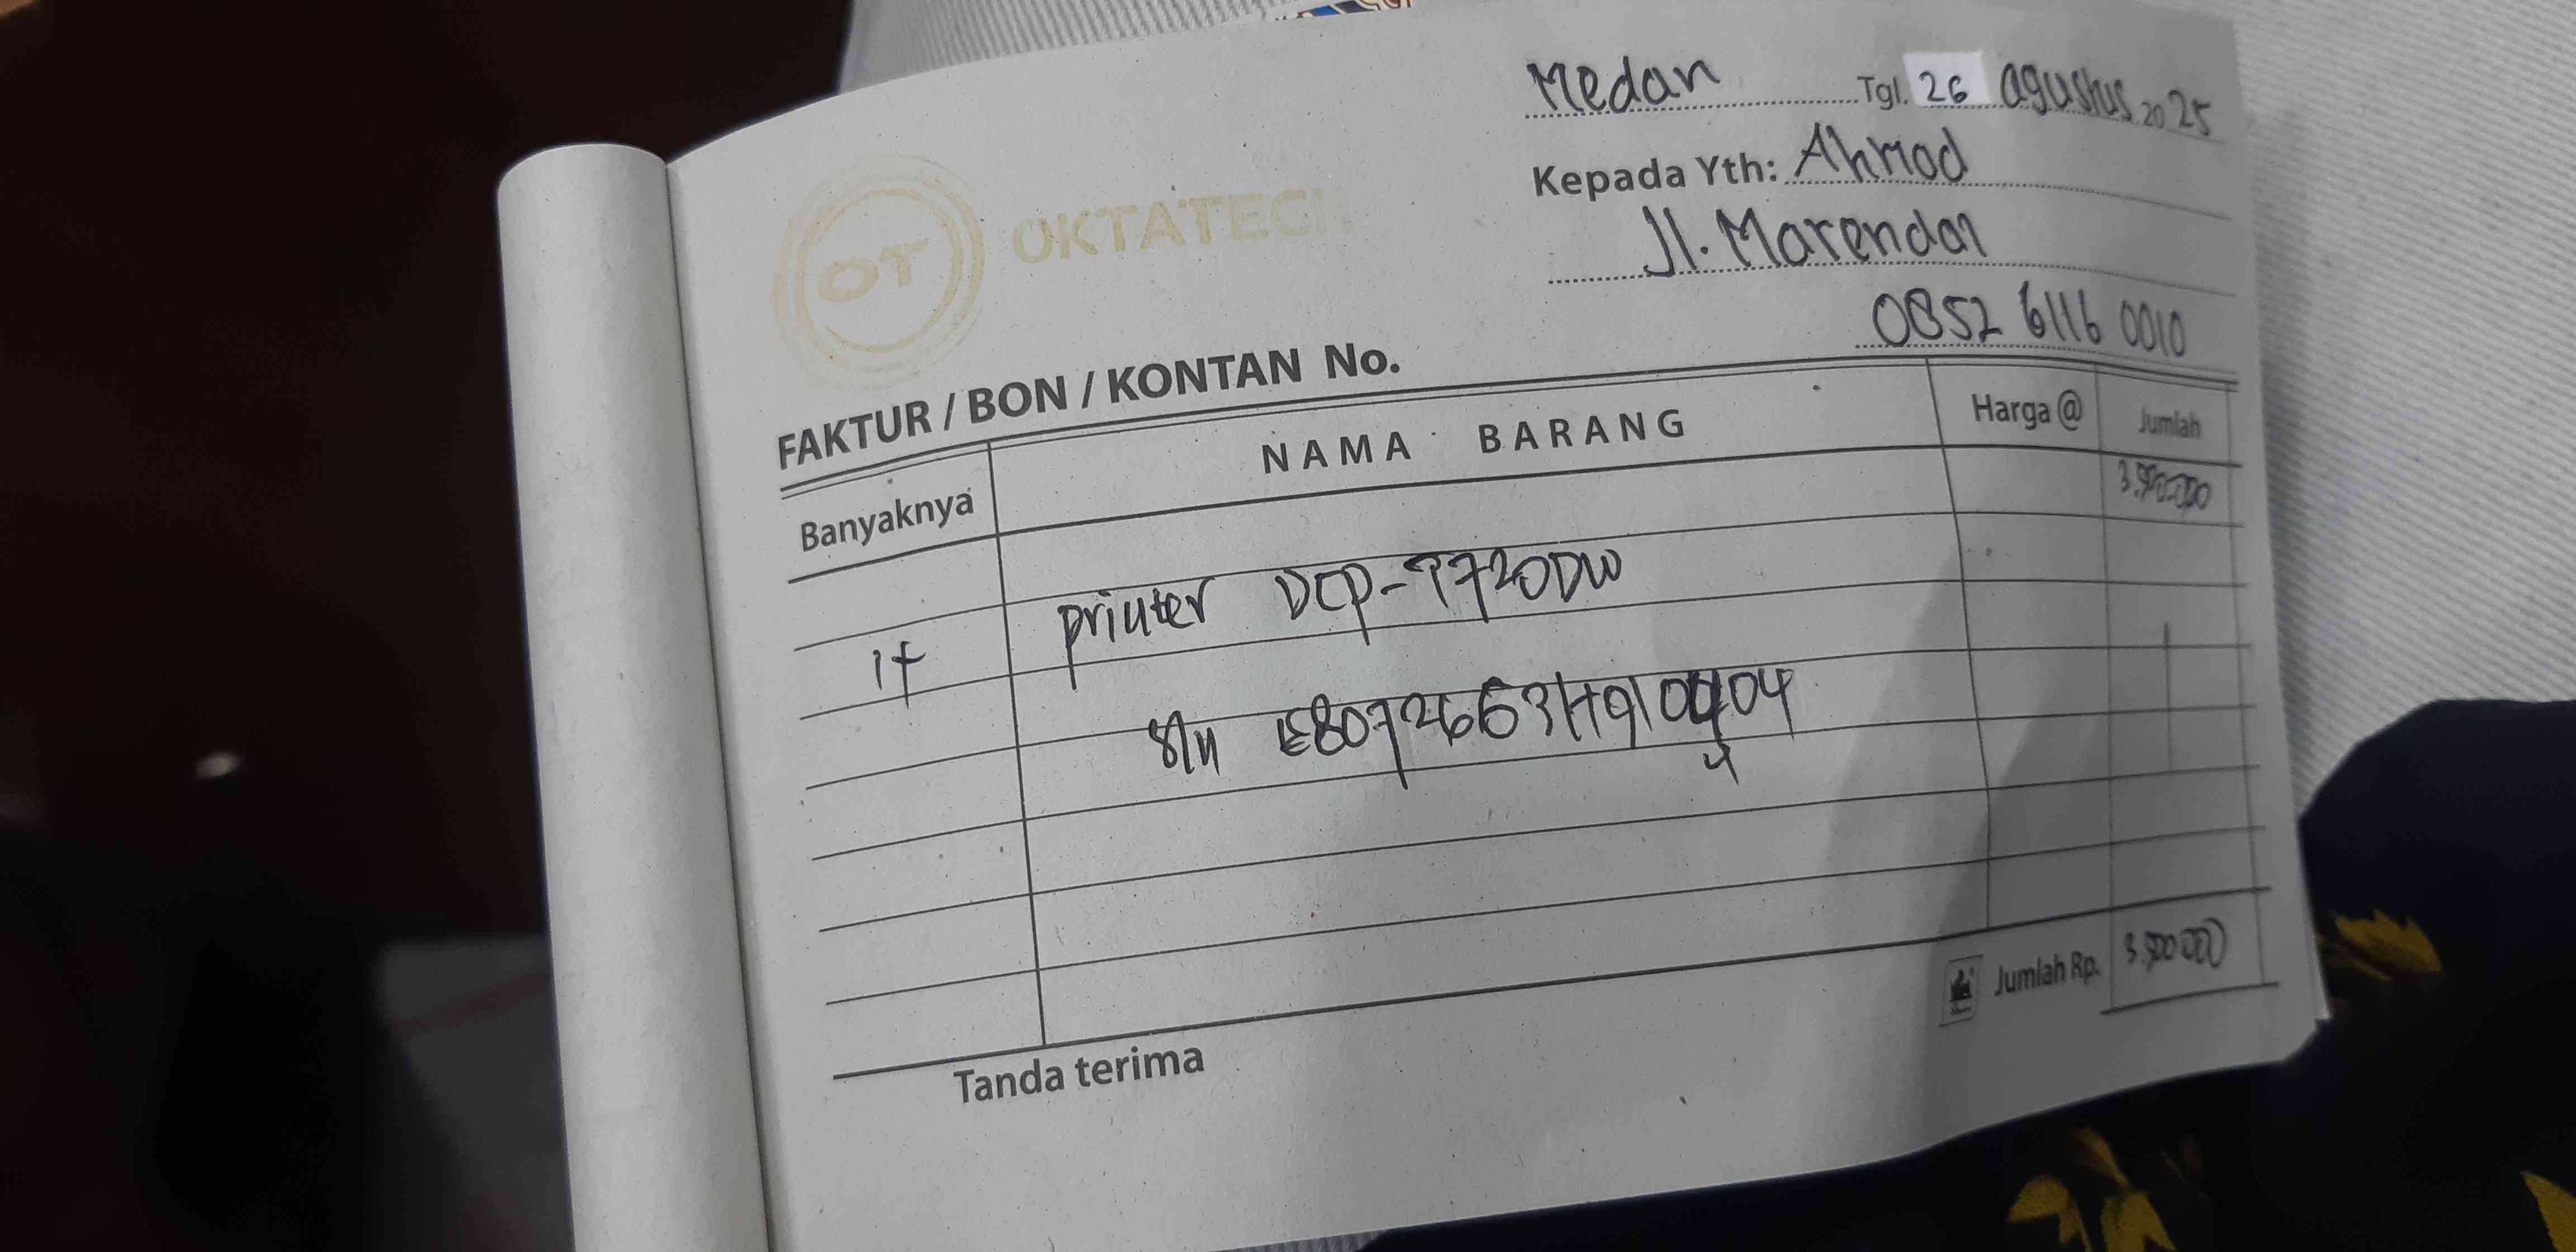 Medan Tgl. 26 agustus 2025
Kepada Yth: Ahmad
Jl. Marendal
0852 6116 0010
OT OKTATECH
FAKTUR / BON / KONTAN No.
Banyaknya NAMA BARANG Harga @ Jumlah
1 printer DCP-T720DW
S/N
Jumlah Rp.
Tanda terima